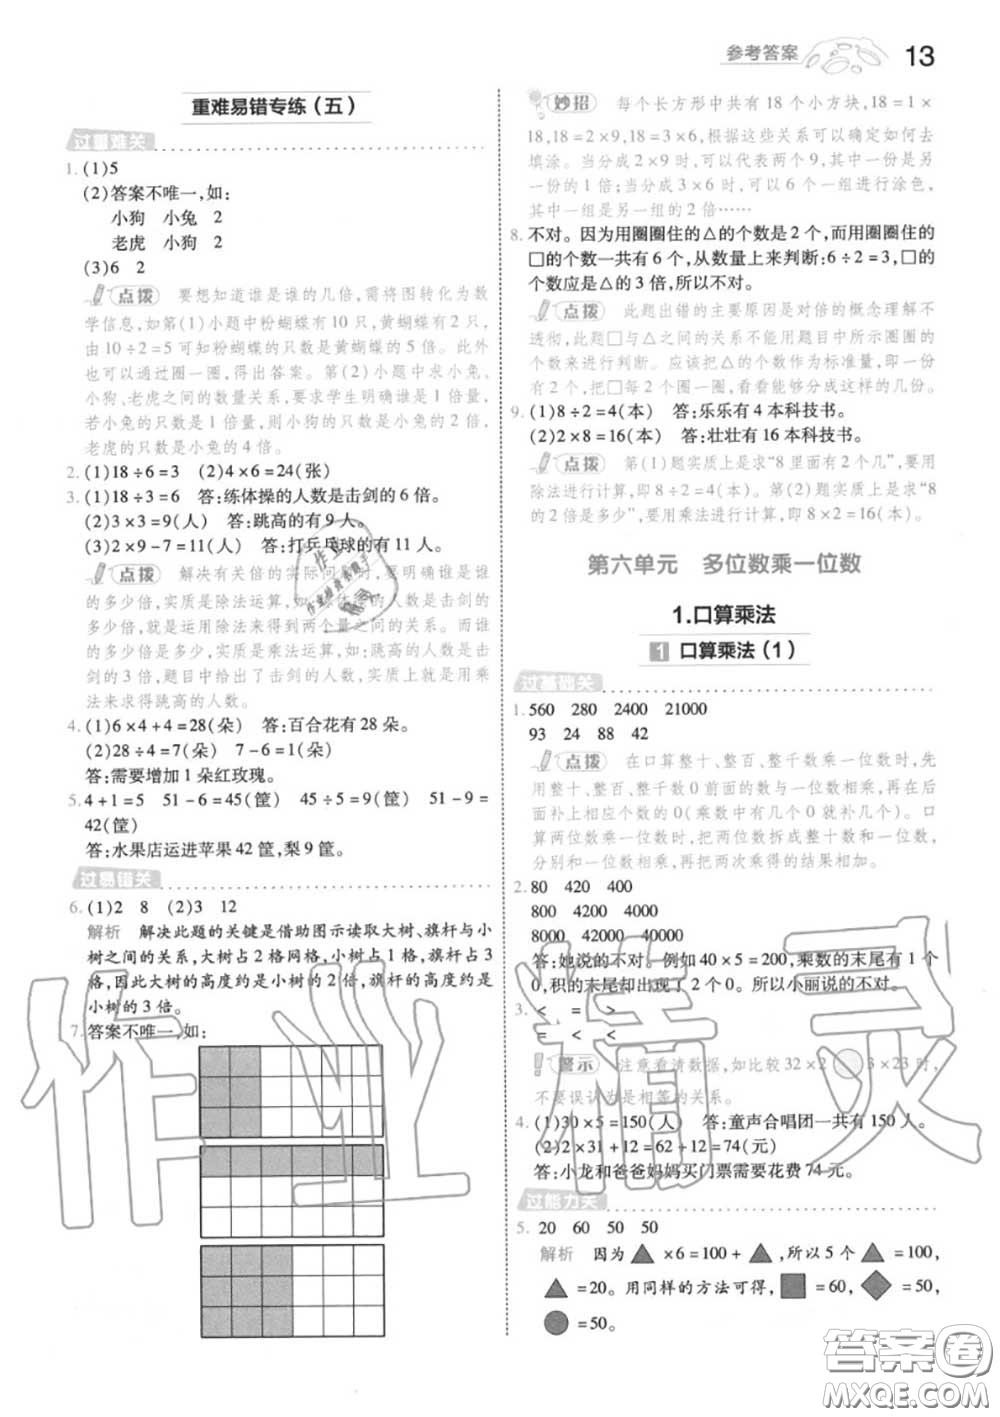 参考答案 13
重难易错专练(五)
过重难关
1. (1)5
(2)答案不唯一,如:
小狗 小兔 2
老虎 小狗 2
(3)6 2
点拨 要想知道谁是谁的几倍,需将图转化为数
学信息,如第(1)小题中粉蝴蝶有10只,黄蝴蝶有2只,
由10÷2=5可知粉蝴蝶的只数是黄蝴蝶的5倍。此外
也可以通过圈一圈,得出答案。第(2)小题中求小兔、
小狗、老虎之间的数量关系,要求学生明确谁是1倍量,
若小兔的只数是1倍量,则小狗的只数是小兔的2倍,
老虎的只数是小兔的4倍。
2. (1)18÷6=3 (2)4×6=24(张)
3. (1)18÷3=6 答:练体操的人数是击剑的6倍。
(2)3×3=9(人) 答:跳高的有9人。
(3)2×9-7=11(人) 答:打乒乓球的有11人。
点拨 解决有关倍的实际问题时,要明确谁是谁
的多少倍,实质是除法运算,如练体操的人数是击剑
的多少倍,就是运用除法来得到两个量之间的关系。而谁
的多少倍是多少,实质是乘法运算,如:跳高的人数是击
剑的3倍,题目中给出了击剑的人数,实质就是运用乘
法来求得跳高的人数。
4. (1)6×4+4=28(朵) 答:百合花有28朵。
(2)28÷4=7(朵) 7-6=1(朵)
答:需要增加1朵红玫瑰。
5. 4+1=5 51-6=45(筐) 45÷5=9(筐) 51-9=
42(筐)
答:水果店运进苹果42筐,梨9筐。
过易错关
6. (1)2 8 (2)3 12
解析 解决此题的关键是借助图示读取大树、旗杆与小
树之间的关系,大树占2格网格,小树占1格,旗杆占3
格,因此大树的高度约是小树的2倍,旗杆的高度约是
小树的3倍。
7. 答案不唯一,如:
妙招 每个长方形中共有18个小方块,18=1×
18,18=2×9,18=3×6,根据这些关系可以确定如何去
填涂。当分成2×9时,可以代表两个9,其中一份是另
一份的1倍;当分成3×6时,可以6个一组进行涂色,
其中一组是另一组的2倍……
8. 不对。因为用圈圈住的△的个数是2个,而用圈圈住的
□的个数一共有6个,从数量上来判断:6÷2=3,□的
个数应是△的3倍,所以不对。
点拨 此题出错的主要原因是对倍的概念理解不
透彻,此题□与△之间的关系不能用题目中所示圈圈的
个数来进行判断。应该把△的个数作为标准量,即一份
有2个,把□每2个圈一圈,看看能够分成这样的几份。
9. (1)8÷2=4(本) 答:乐乐有4本科技书。
(2)2×8=16(本) 答:壮壮有16本科技书。
点拨 第(1)题实质上是求“8里面有2个几”,要用
除法进行计算,即8÷2=4(本)。第(2)题实质上是求“8
的2倍是多少”,要用乘法进行计算,即8×2=16(本)。
第六单元 多位数乘一位数
1.口算乘法
1 口算乘法(1)
过基础关
1. 560 280 2400 21000
93 24 88 42
点拨 在口算整十、整百、整千数乘一位数时,先
用整十、整百、整千数0前面的数与一位数相乘,再在后
面补上相应个数的0(乘数中有几个0就补几个)。口
算两位数乘一位数时,把两位数拆成整十数和一位数,
分别和一位数相乘,再把两次乘得的结果相加。
2. 80 420 400
800 4200 4000
8000 42000 40000
答:她说的不对。例如40×5=200,乘数的末尾有1个
0,积的末尾却出现了2个0。所以小丽说的不对。
3. < = >
= < <
警示 注意看清数据,如比较32×2 3×23时,
不要误认为是相等的关系。
4. (1)30×5=150(人) 答:童声合唱团一共有150人。
(2)2×31+12=62+12=74(元)
答:小龙和爸爸妈妈买门票需要花费74元。
过能力关
5. 20 60 50 50
解析 因为▲×6=100+▲,所以5个▲=100,
▲=20。用同样的方法可得,■=60,◆=50,
●=50。
作业精灵
答案卷
MXQE.COM